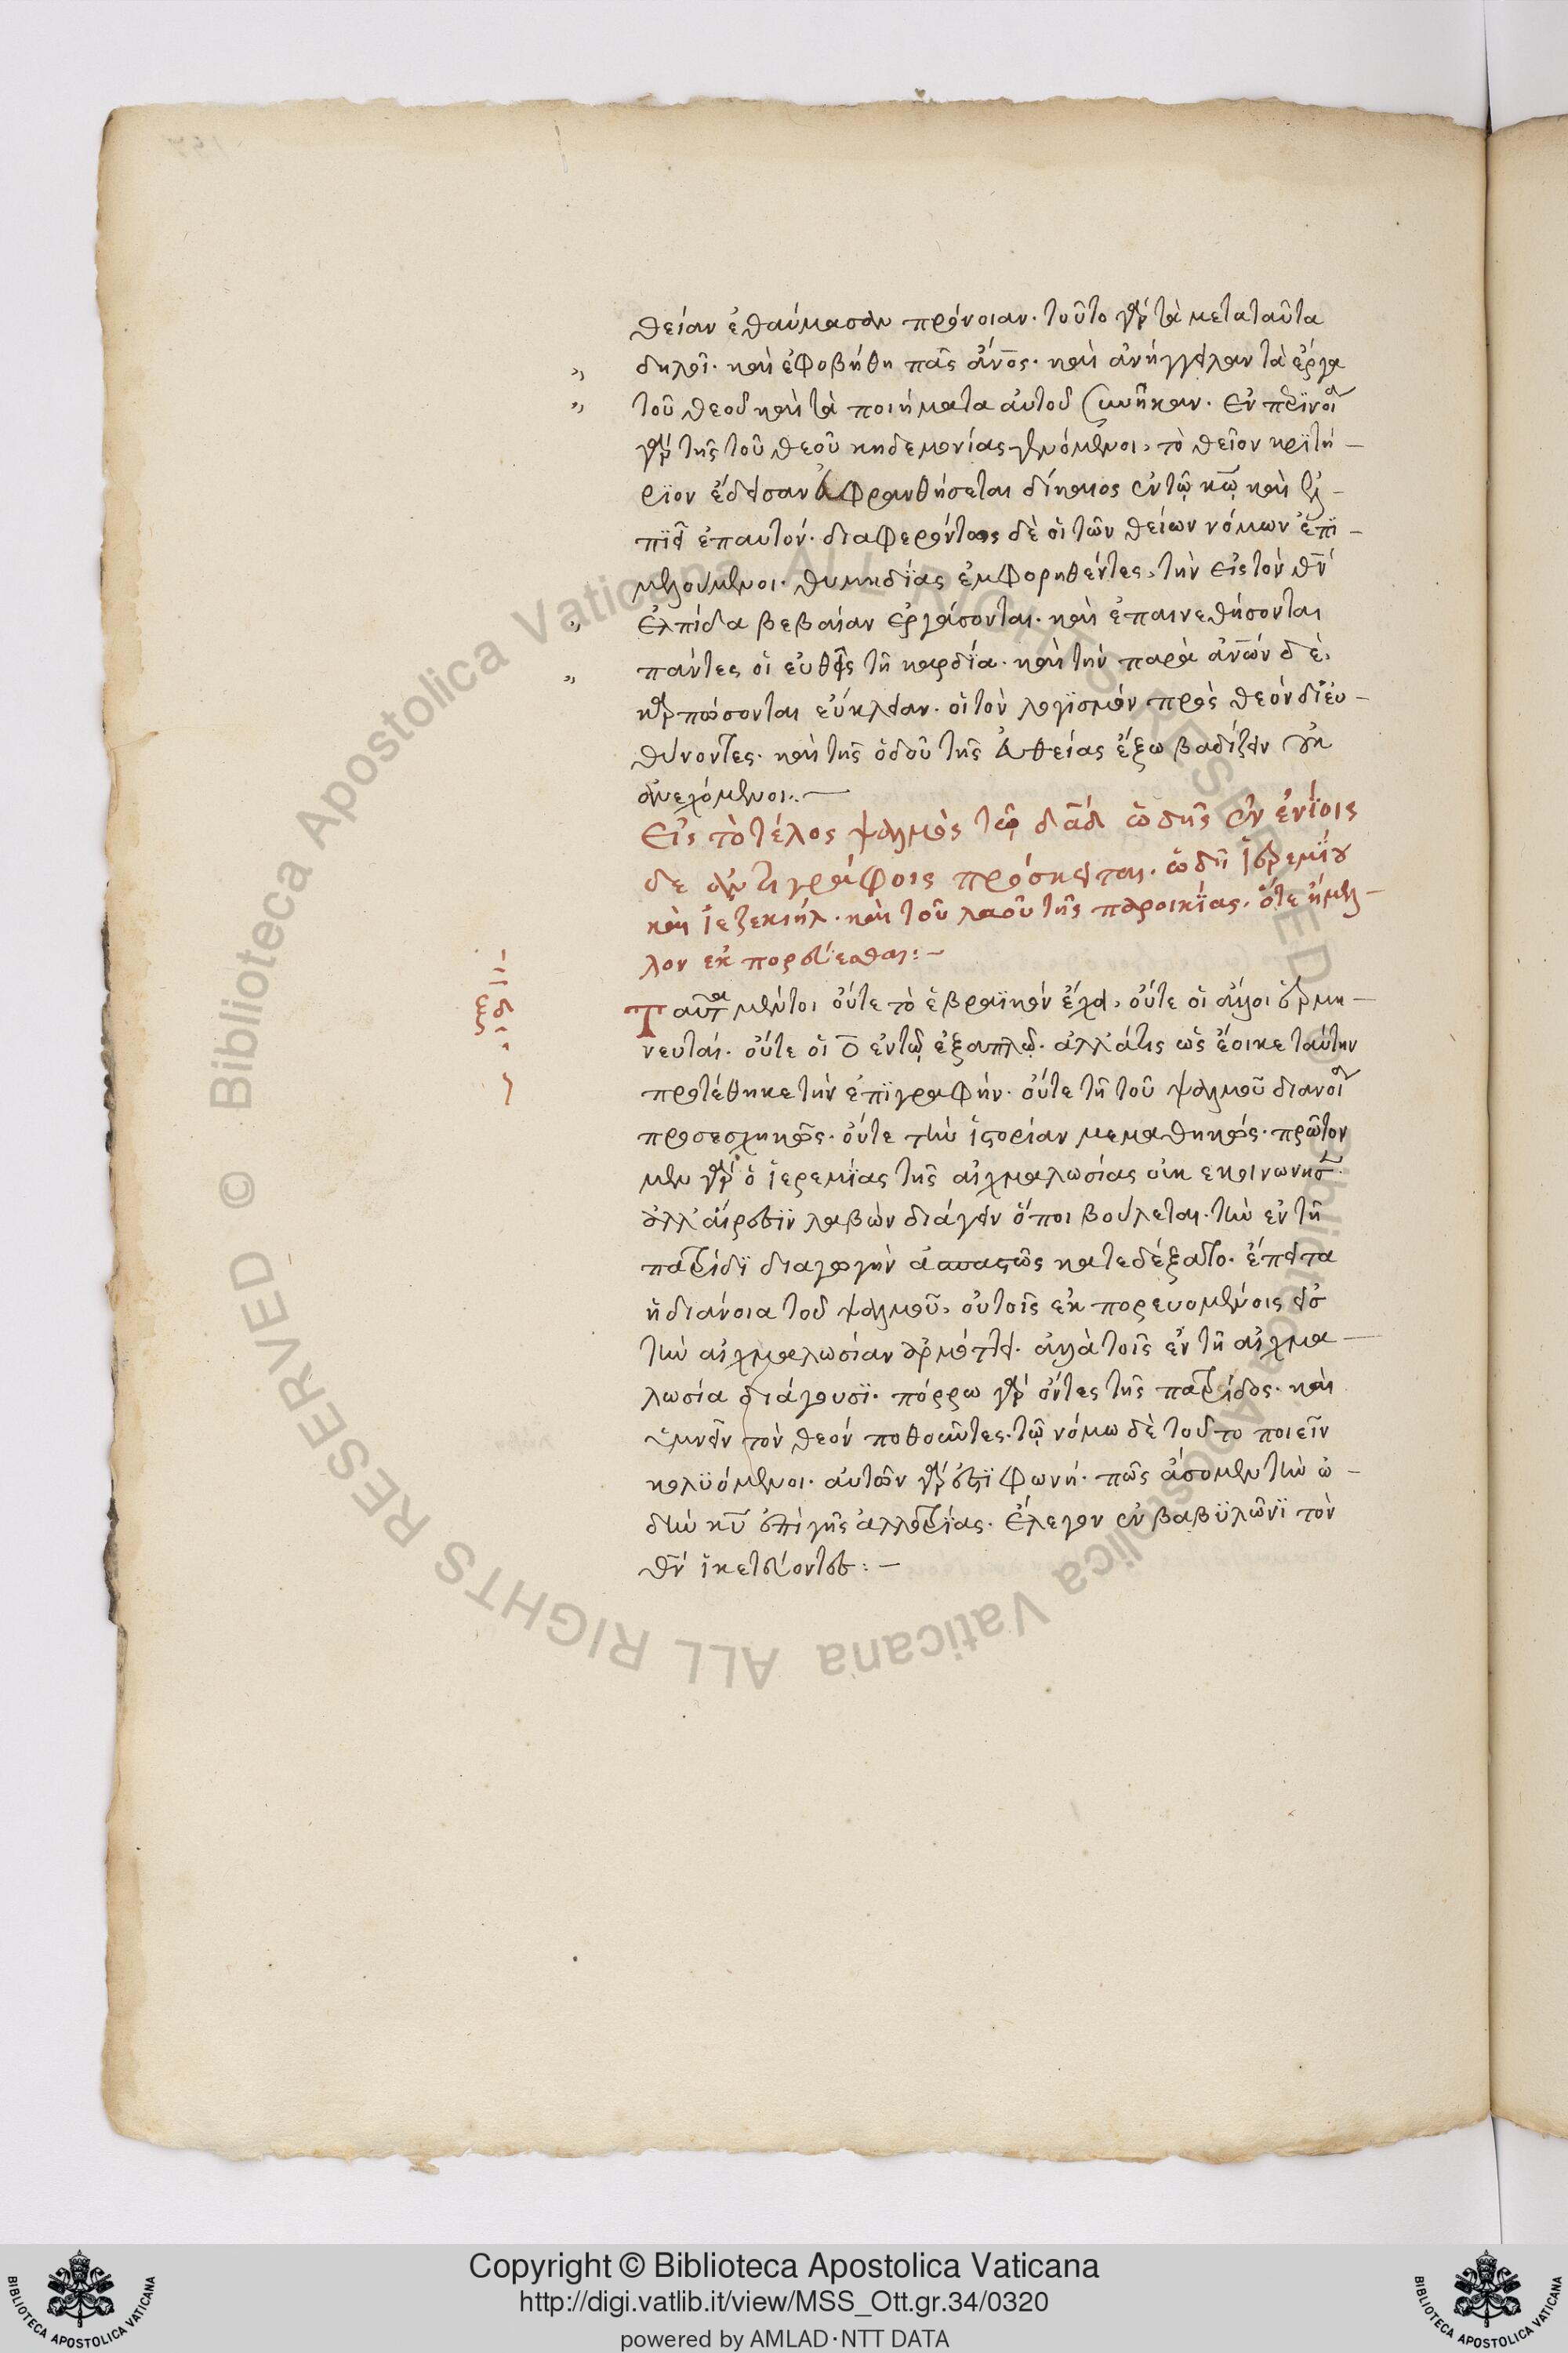 θείαν ἐθαύμασαν πρόνοιαν. τοῦτο γὰρ τὰ μετα ταῦτα
δηλοῖ. καὶ ἐφοβήθη πᾶς ἄνος. καὶ ἀνήγγειλαν τὰ ἔργα
τοῦ θεοῦ καὶ τὰ ποιήματα αὐτοῦ συνῆκαν. ἐν περϊνοία
γὰρ τῆς τοῦ θεοῦ κηδεμονίας γενόμενοι, τὸ θεῖον κρϊτή-
ρϊον ἔδεισαν εὐφρανθήσεται δίκαιος ἐν τῷ κω καὶ ἐλ-
πϊεῖ ἐπαυτόν. διαφερόντως δὲ οἱ τῶν θείων νόμων ἐπϊ-
μελούμενοι. θυμηδίας ἐμφορηθέντες, τὴν εἰς τὸν θν
ἐλπίδα βεβαίαν ἐργάσονται. καὶ ἐπαινεθήσονται
πάντες οἱ εὐθεῖς τῆ καρδία. καὶ τὴν παρὰ ἀνων δὲ,
καρπώσονται εὔκλειαν. οἱ τὸν λογϊσμὸν πρὸς θεὸν διευ-
θύνοντες. καὶ τῆς ὁδοῦ τῆς εὐθείας ἔξω βαδίζειν οὐκ
ἀνεχόμενοι.
Εἰς τὸ τέλος ψαλμὸς τῷ δαδ ὠδῆς ἐν ἐνίοις
δε ἀντιγράφοις πρόσκειται. ὠδὴ ἱερεμΐου
καὶ ἰεζεκιήλ. καὶ τοῦ λαοῦ τῆς παροικΐας, ὅτε ἤμελ-
λον ἐκπορεύεσθαι:-
ξδ
Ταῦτα μέντοι οὔτε τὸ ἑβραϊκὸν ἔχει, οὔτε οἱ ἄλλοι ἑρμη-
νευταί. οὔτε οἱ ο ἐν τῷ ἑξαπλῷ. ἀλλά τις ὡς ἔοικε ταύτην
προτέθηκε τὴν ἐπϊγραφήν. οὔτε τῆ τοῦ ψαλμοῦ διανοία
προσεσχηκὼς. οὔτε τὴν ἱστορίαν μεμαθηκώς. πρῶτον
μὲν γὰρ ὁ ἱερεμΐας τῆς αἰχμαλωσίας οὐκ εκοινώνησεν.
ἀλλ' αἵρεσϊν λαβὼν διάγειν ὅποι βούλεται. τὴν ἐν τῆ
πατρίδϊ διαγωγὴν ἀσπαστῶς κατεδέξατο. ἔπειτα
ἡ διάνοια τοῦ ψαλμοῦ, οὐ τοῖς ἐκπορευομένοις εἰς
τὴν αἰχμαλωσίαν ἁρμόττει. ἀλλὰ τοῖς ἐν τῆ αἰχμα-
λωσία διάγουσϊ. πόρρω γὰρ ὄντες τῆς πατρίδος. καὶ
ὑμνεῖν τὸν θεὸν ποθοῦντες. τῷ νόμω δὲ τοῦτο ποιεῖν
κωλϋόμενοι. αὐτῶν γὰρ ἐστϊ φωνή. πῶς ἄσομεν τὴν ὠ-
δὴν κυ ἐπὶ γῆς ἀλλοτρΐας. ἔλεγον ἐν βαβϋλῶνϊ τὸν
θν ἱκετεύοντες:-
Copyright © Biblioteca Apostolica Vaticana
http://digi.vatlib.it/view/MSS_Ott.gr.34/0320
powered by AMLAD·NTT DATA